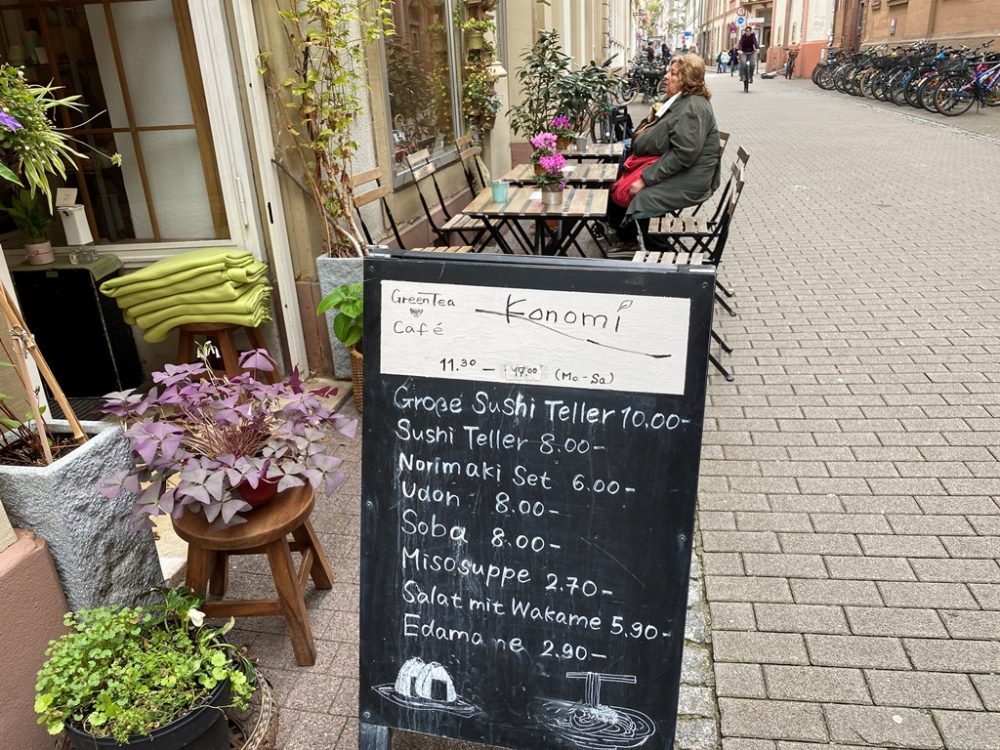 GreenTea
Café
Konomi
11.30 — 17.00 (Mo - Sa)
Große Sushi Teller 10.00-
Sushi Teller 8.00-
Norimaki Set 6.00-
Udon 8.00-
Soba 8.00-
Misosuppe 2.70-
Salat mit Wakame 5.90-
Edamame 2.90-